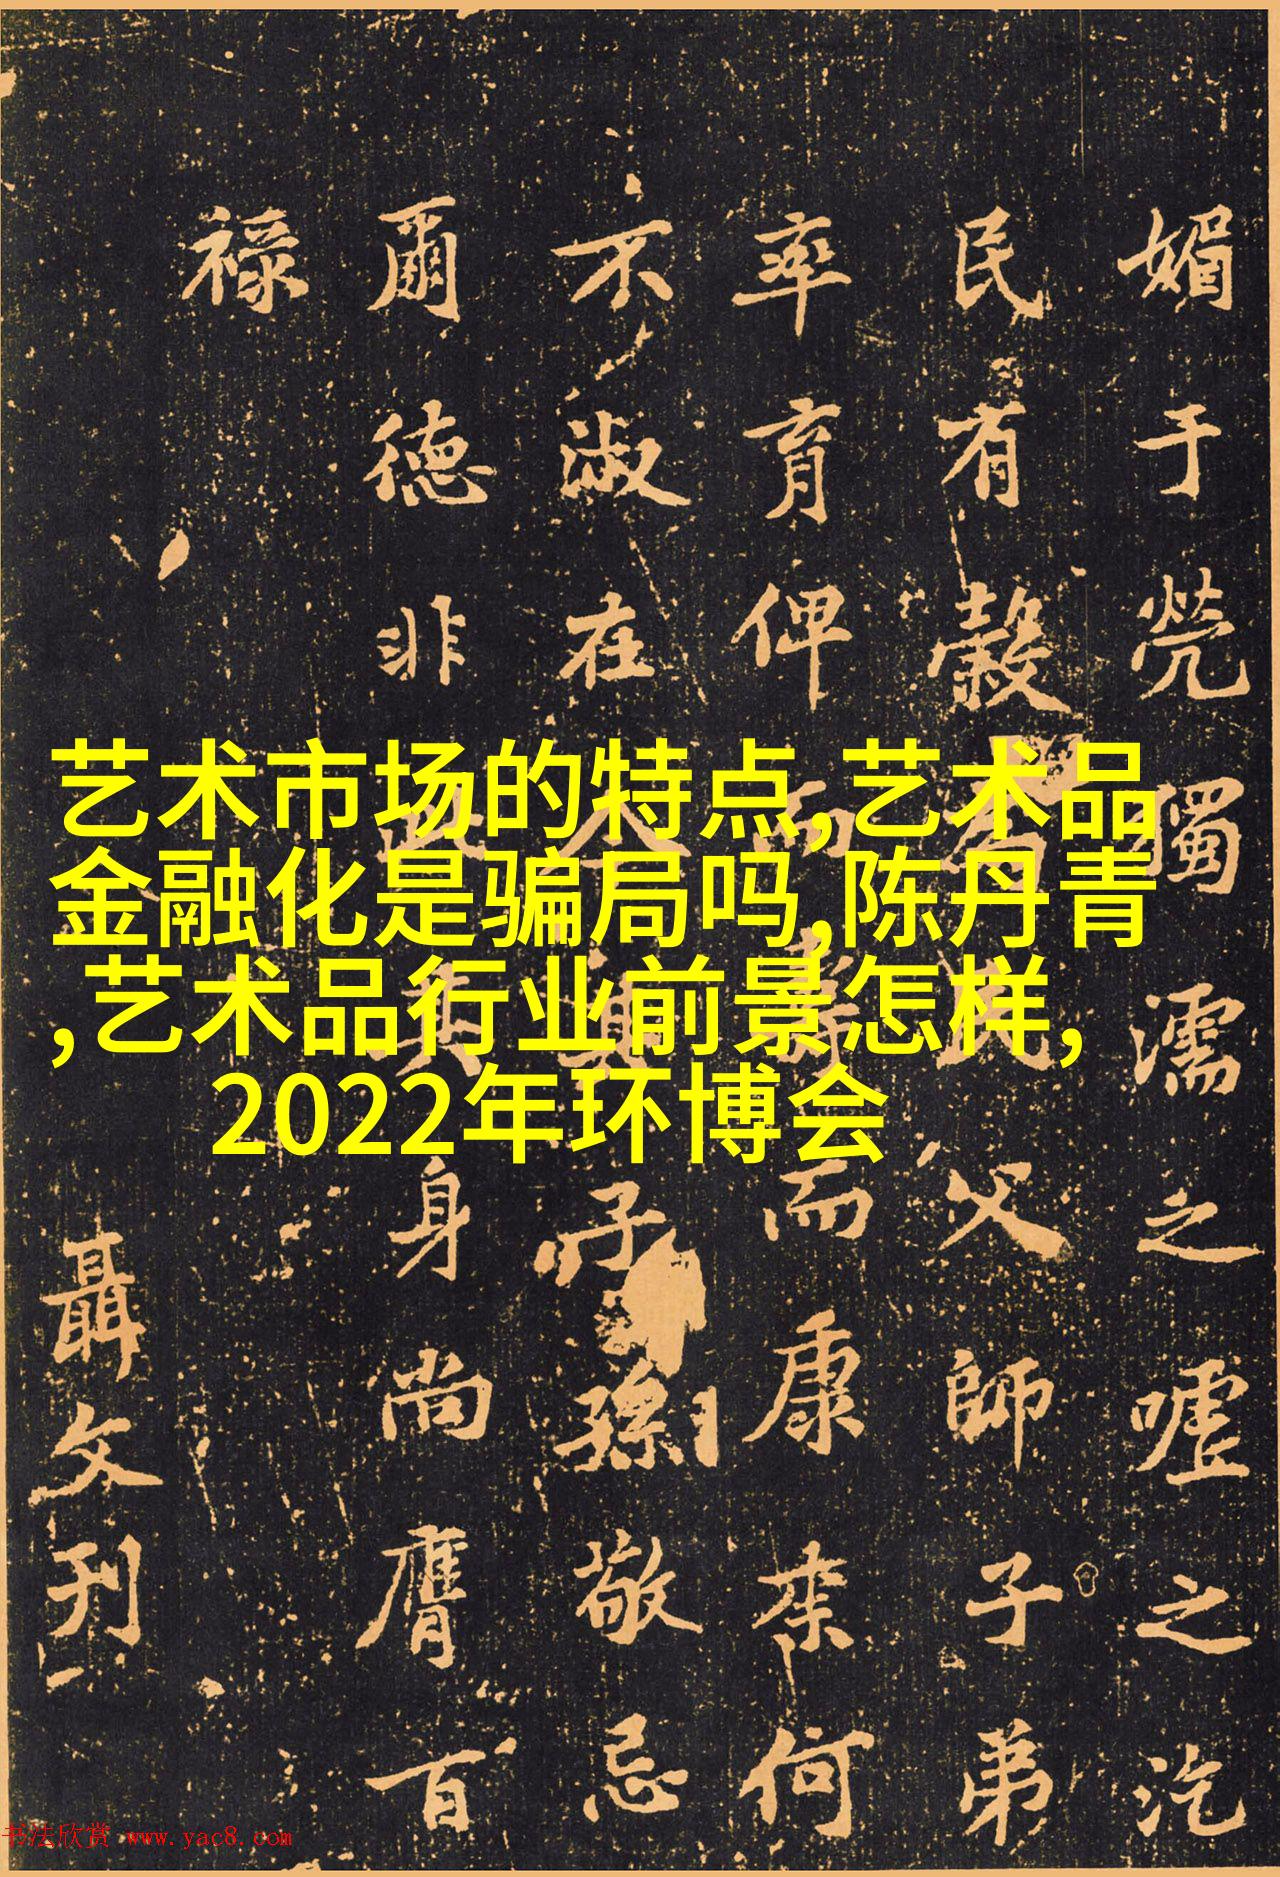 艺术市场的特点,艺术品
金融化是骗局吗,陈丹青
,艺术品行业前景怎样,
2022年环博会
媚于茕獨濡之嘘之汔
民有穀 民父師子弟
率育俾而壽而康来何
不淑在 子孫敬忌
爾德非 身尚膺百
禄
聶文刊
书法欣赏 www.yac8.com